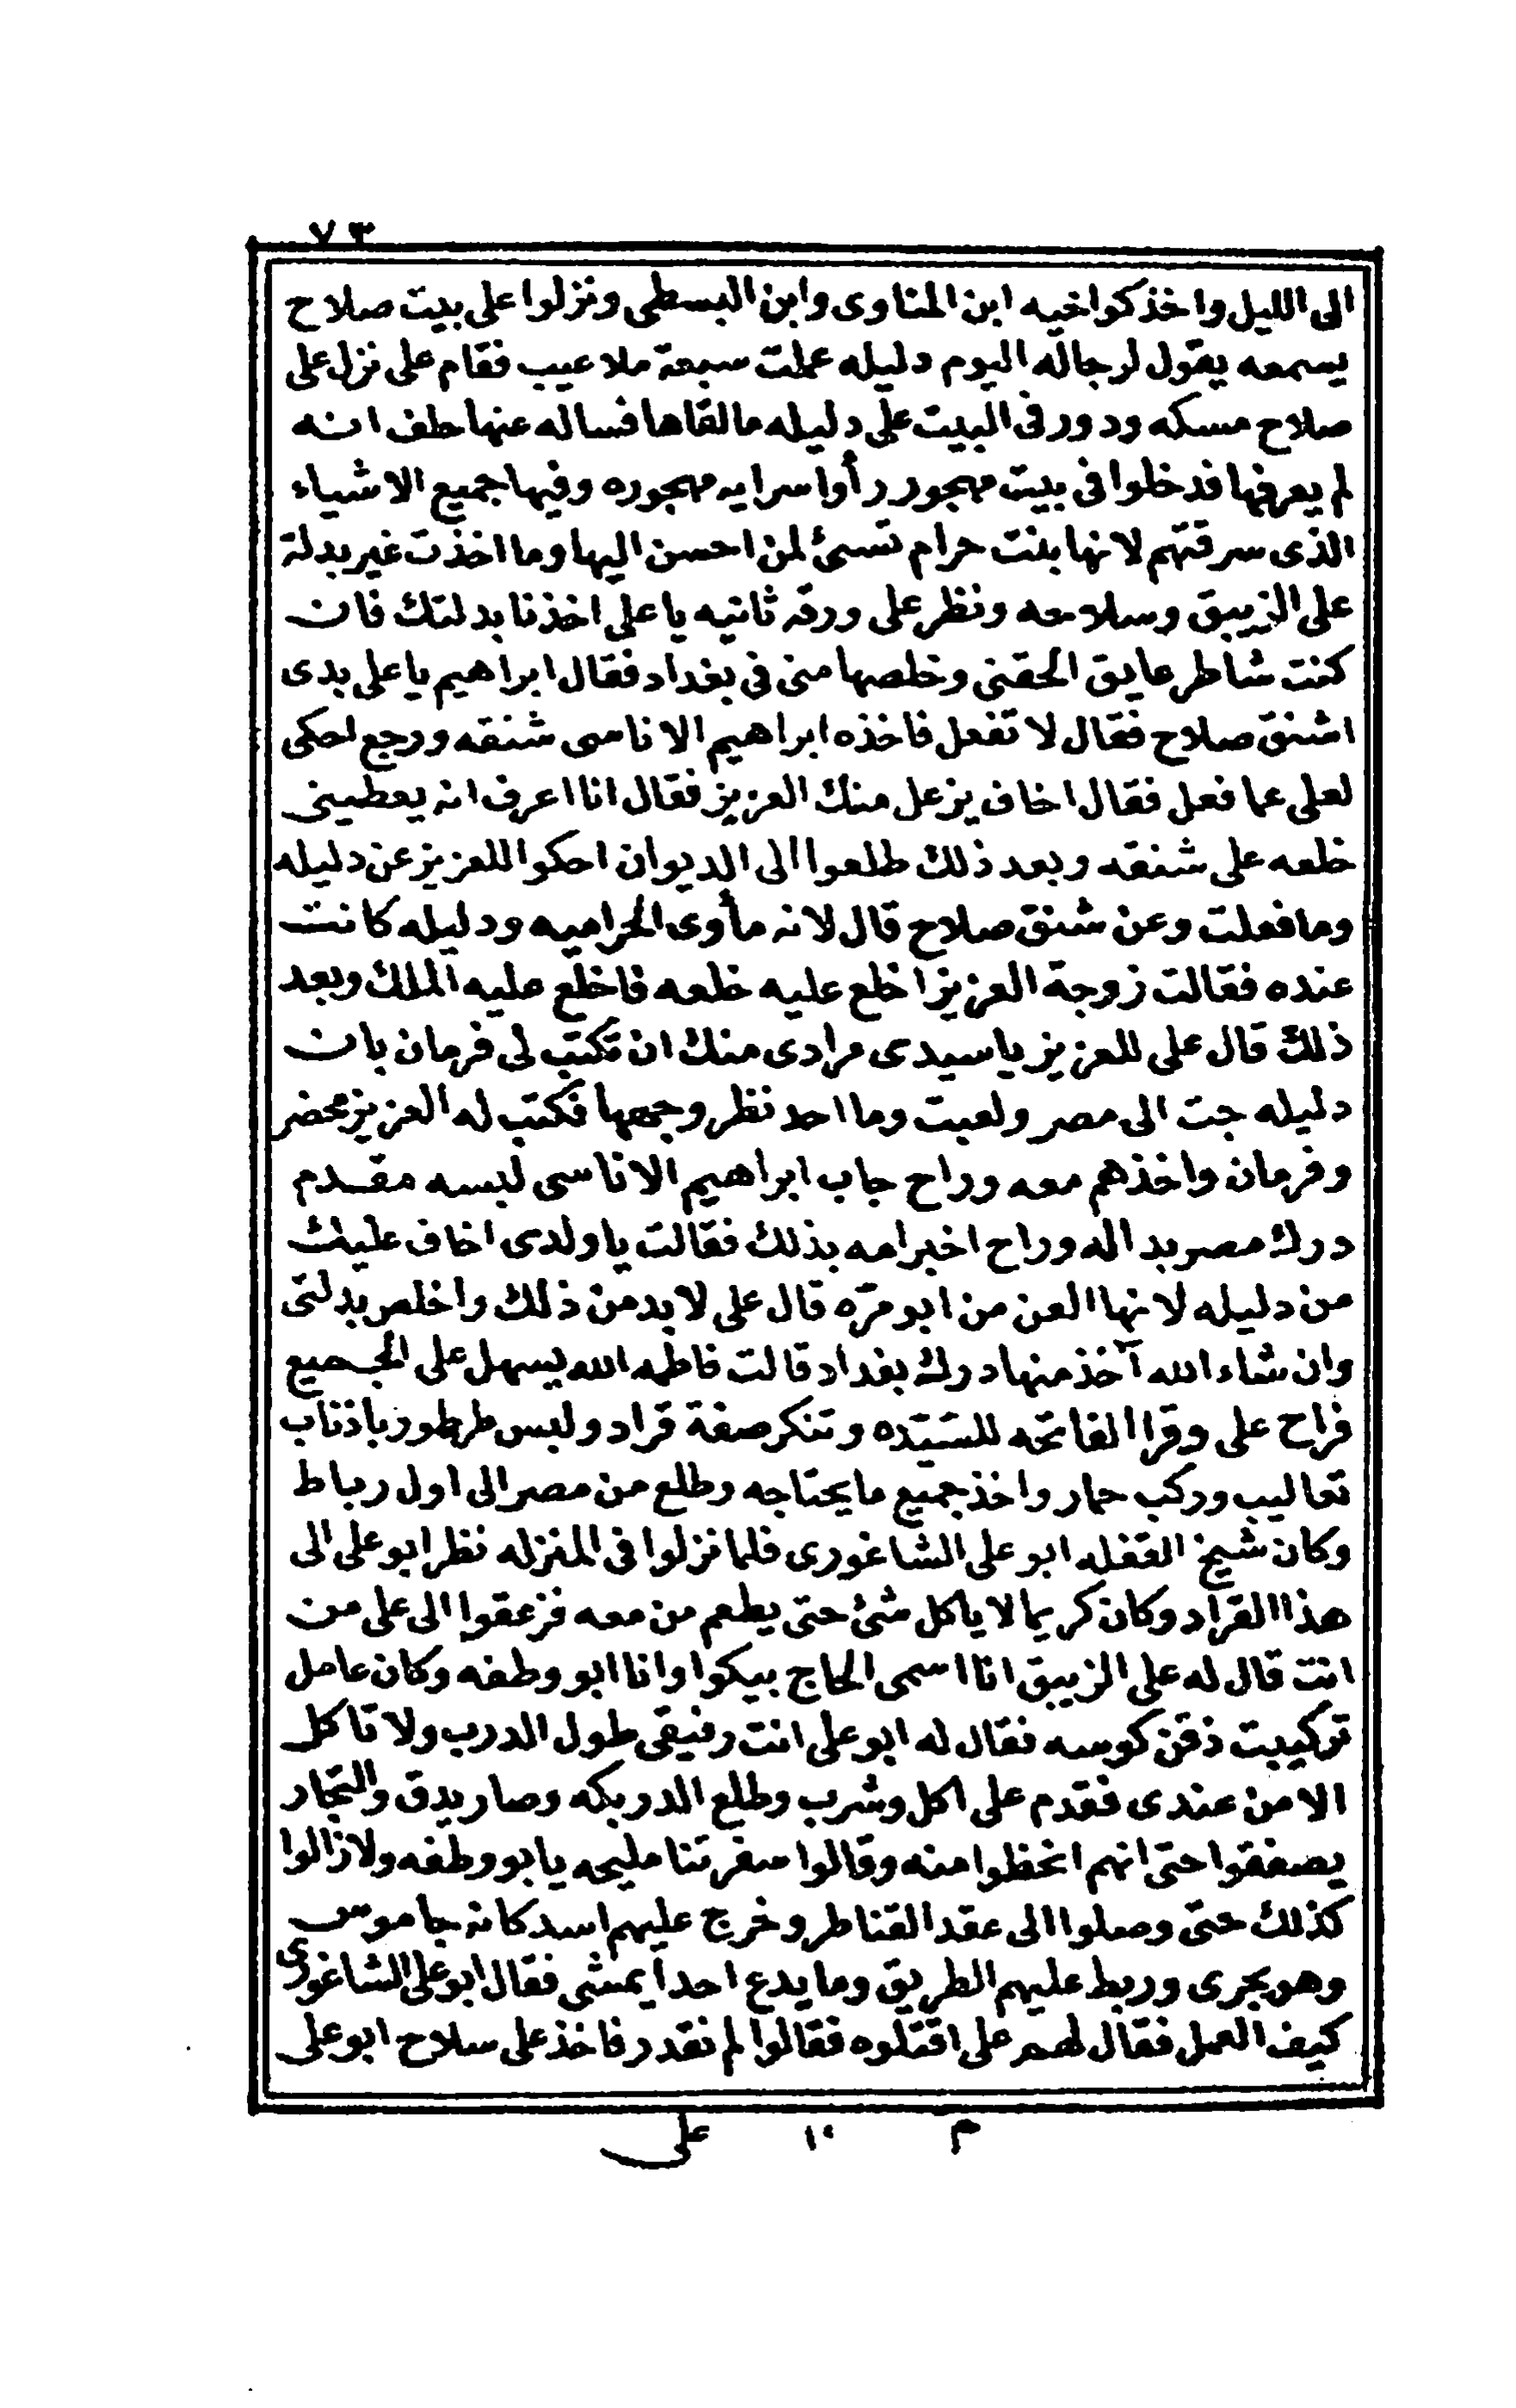 ٧٣
الى الليل واخذ كواخيه ابن المناوى وابن البسطى ونزلوا على بيت صلاح
يسمعه يقول لرجاله اليوم دليله عملت سبعة ملاعيب فقام على نزل على
صلاح مسكه ودور فى البيت على دليله مالقاها فساله عنها حلف انه
لم يعرفها فدخلوا فى بيت مهجور رأوا سرايه مهجوره وفيها جميع الاشياء
الذى سرقتهم لانها بنت حرام تسىئ لمن احسن اليها وما اخذت غير بدلة
على الزيبق وسلاحه ونظر على ورقه ثانيه يا على اخذنا بدلتك فان
كنت شاطر عايق الحقنى وخلصها منى فى بغداد فقال ابراهيم يا على بدى
اشنق صلاح فقال لا تفعل فاخذه ابراهيم الاناسى شنقه ورجع احكى
لعلى عما فعل فقال اخاف يزعل منك العزيز فقال انا اعرف انه يعطينى
خلعه على شنقه وبعد ذلك طلعوا الى الديوان احكوا للعزيز عن دليله
وما فعلت وعن شنق صلاح قال لانه مأوى الحراميه ودليله كانت
عنده فقالت زوجة العزيز اخلع عليه خلعه فاخلع عليه الملك وبعد
ذلك قال على للعزيز يا سيدى مرادى منك ان تكتب لى فرمان بان
دليله جت الى مصر ولعبت وما احد نظر وجهها فكتب له العزيز محضر
وفرمان واخذهم معه وراح جاب ابراهيم الاناسى لبسه مقدم
درك مصر بداله وراح اخبر امه بذلك فقالت يا ولدى اخاف عليك
من دليله لانها العن من ابو مرّه قال على لابد من ذلك واخلص بدلتى
وان شاء الله آخذ منها درك بغداد قالت فاطمه الله يسهل على الجميع
فراح على وقرا الفاتحه للسيّده وتنكر صفة قراد ولبس طرطور باذناب
تعاليب وركب حمار واخذ جميع ما يحتاجه وطلع من مصر الى اول رباط
وكان شيخ القفله ابو على الشاغورى فلما نزلوا فى المنزله نظر ابو على الى
هذا القراد وكان كريما لا ياكل شئ حتى يطعم من معه فزعقوا الى على من
انت قال له على الزيبق انا اسمى الحاج بيكوا وانا ابو وطفه وكان عامل
تركيبت ذقن كوسه فقال له ابو على انت رفيقى طول الدرب ولا تاكل
الا من عندى فقدم على اكل وشرب وطلع الدربكه وصار يدق والتجار
يصفقوا حتى انهم انحظوا منه وقالوا سفرتنا مليحه يابو وطفه ولا زالوا
كذلك حتى وصلوا الى عقد القناطر وخرج عليهم اسد كانه جاموس
وهو يجرى وربط عليهم الطريق وما يدع احدا يمشى فقال ابو على الشاغورى
كيف العمل فقال لهم على اقتلوه فقالوا لم نقدر فاخذ على سلاح ابو على
م ١٠ على